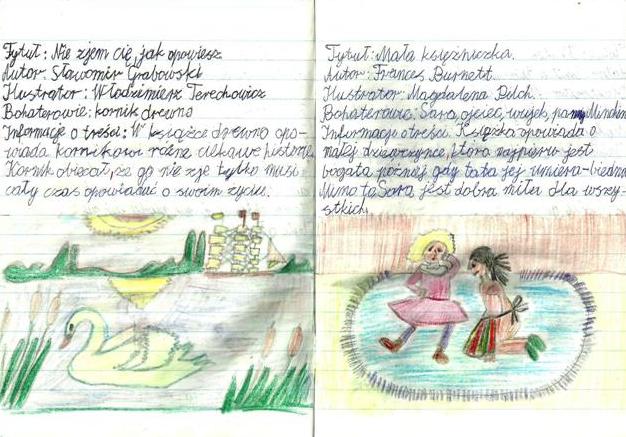 Tytuł: Nie zjem cię, jak opowiesz
Autor: Sławomir Grabowski
Ilustrator: Włodzimierz Terechowicz
Bohaterowie: kornik drewno
Informacje o treści: W książce drewno opo-
wiada kornikowi różne ciekawe historie.
Kornik obiecał, że go nie zje tylko musi
cały czas opowiadać o swoim życiu.
Tytuł: Mała księżniczka.
Autor: Frances Burnett.
Ilustrator: Magdalena
Bohaterowie: Sara, ojciec, wujek, panny Minchin
Informacje o treści. Książka opowiada o
małej dziewczynce, która najpierw jest
bogata, poźniej gdy tata jej umiera-biedna
Mimo to Sara jest dobra, miła dla wszy-
stkich.